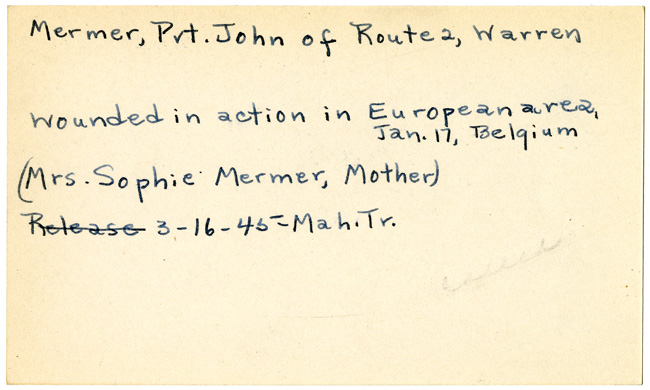 Mermer, Pvt. John of Route 2, Warren
wounded in action in European area,
Jan. 17, Belgium
(Mrs. Sophie Mermer, Mother)
Release 3-16-45-Mah. Tr.